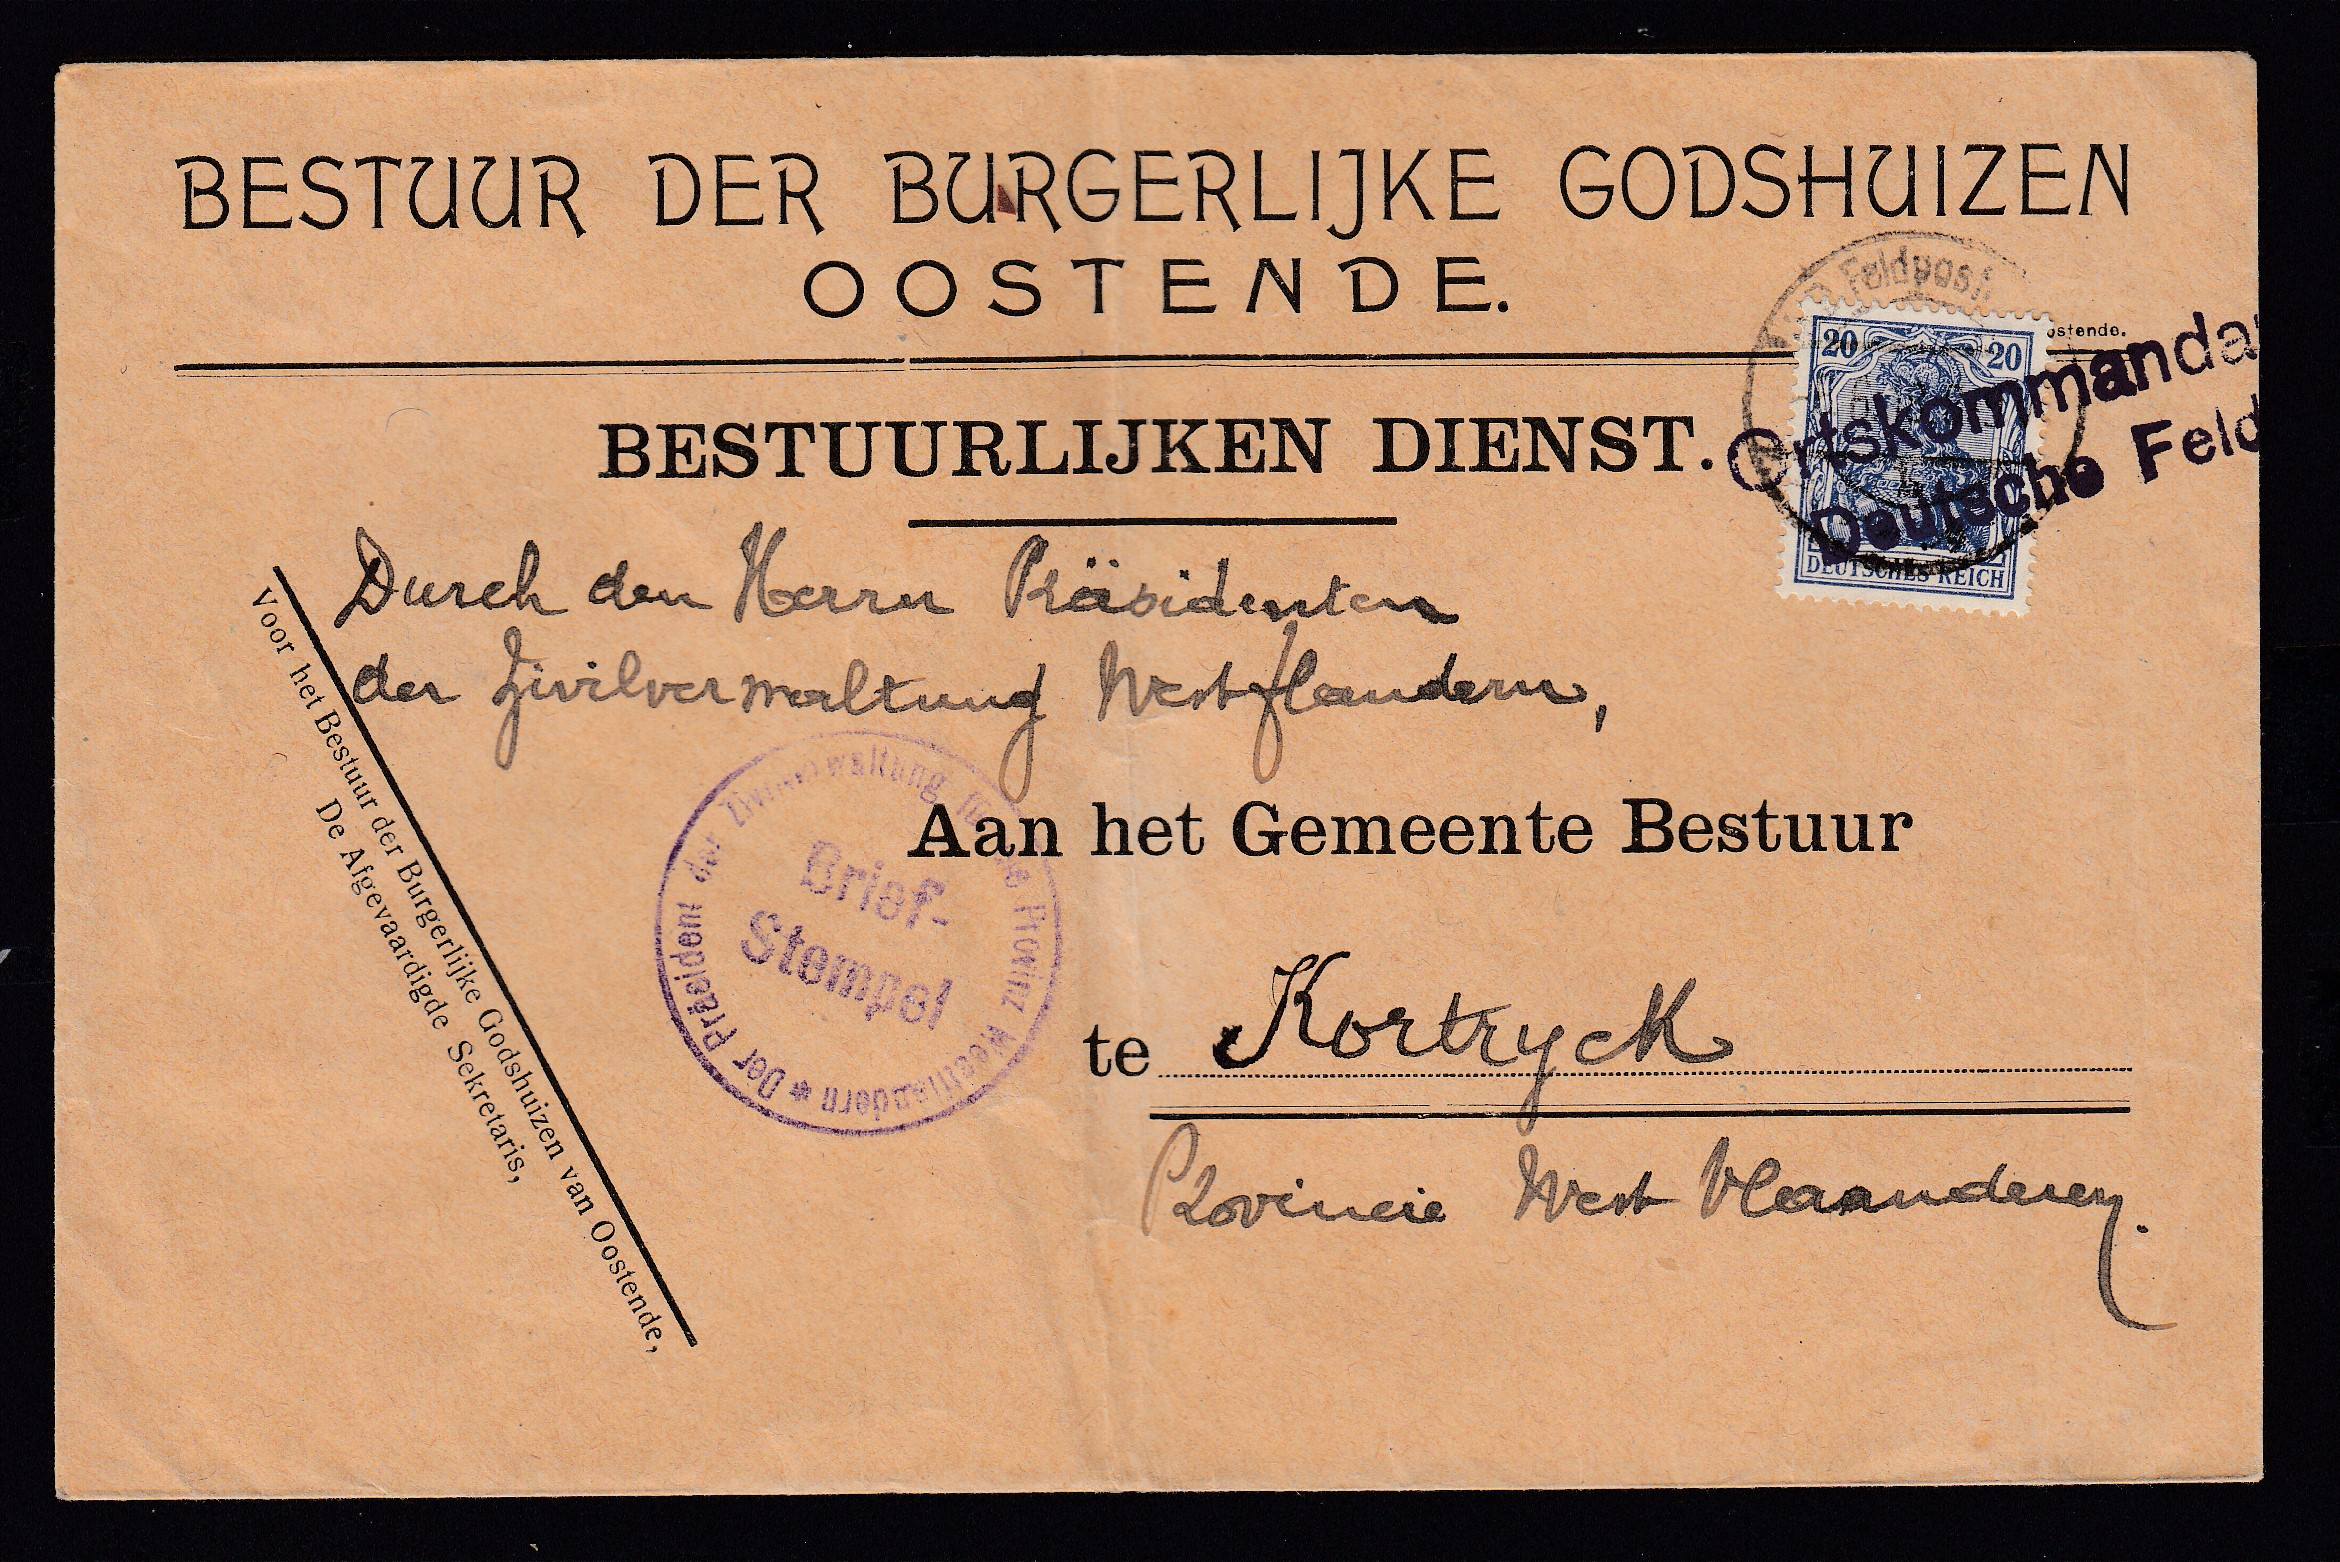 BESTUUR DER BURGERLIJKE GODSHUIZEN
OOSTENDE.
Feldpost
ostende.
20 20
Ortskommanda
Deutsche Feld
DEUTSCHES REICH
BESTUURLIJKEN DIENST.
Durch den Herrn Präsidenten
der Zivilverwaltung Westflandern,
Voor het Bestuur der Burgerlijke Godshuizen van Oostende,
De Afgevaardigde Sekretaris,
Der Präsident der Zivilverwaltung für die Provinz Westflandern *
Brief-
Stempel
Aan het Gemeente Bestuur
te Kortryck
Provincie West Vlaanderen.